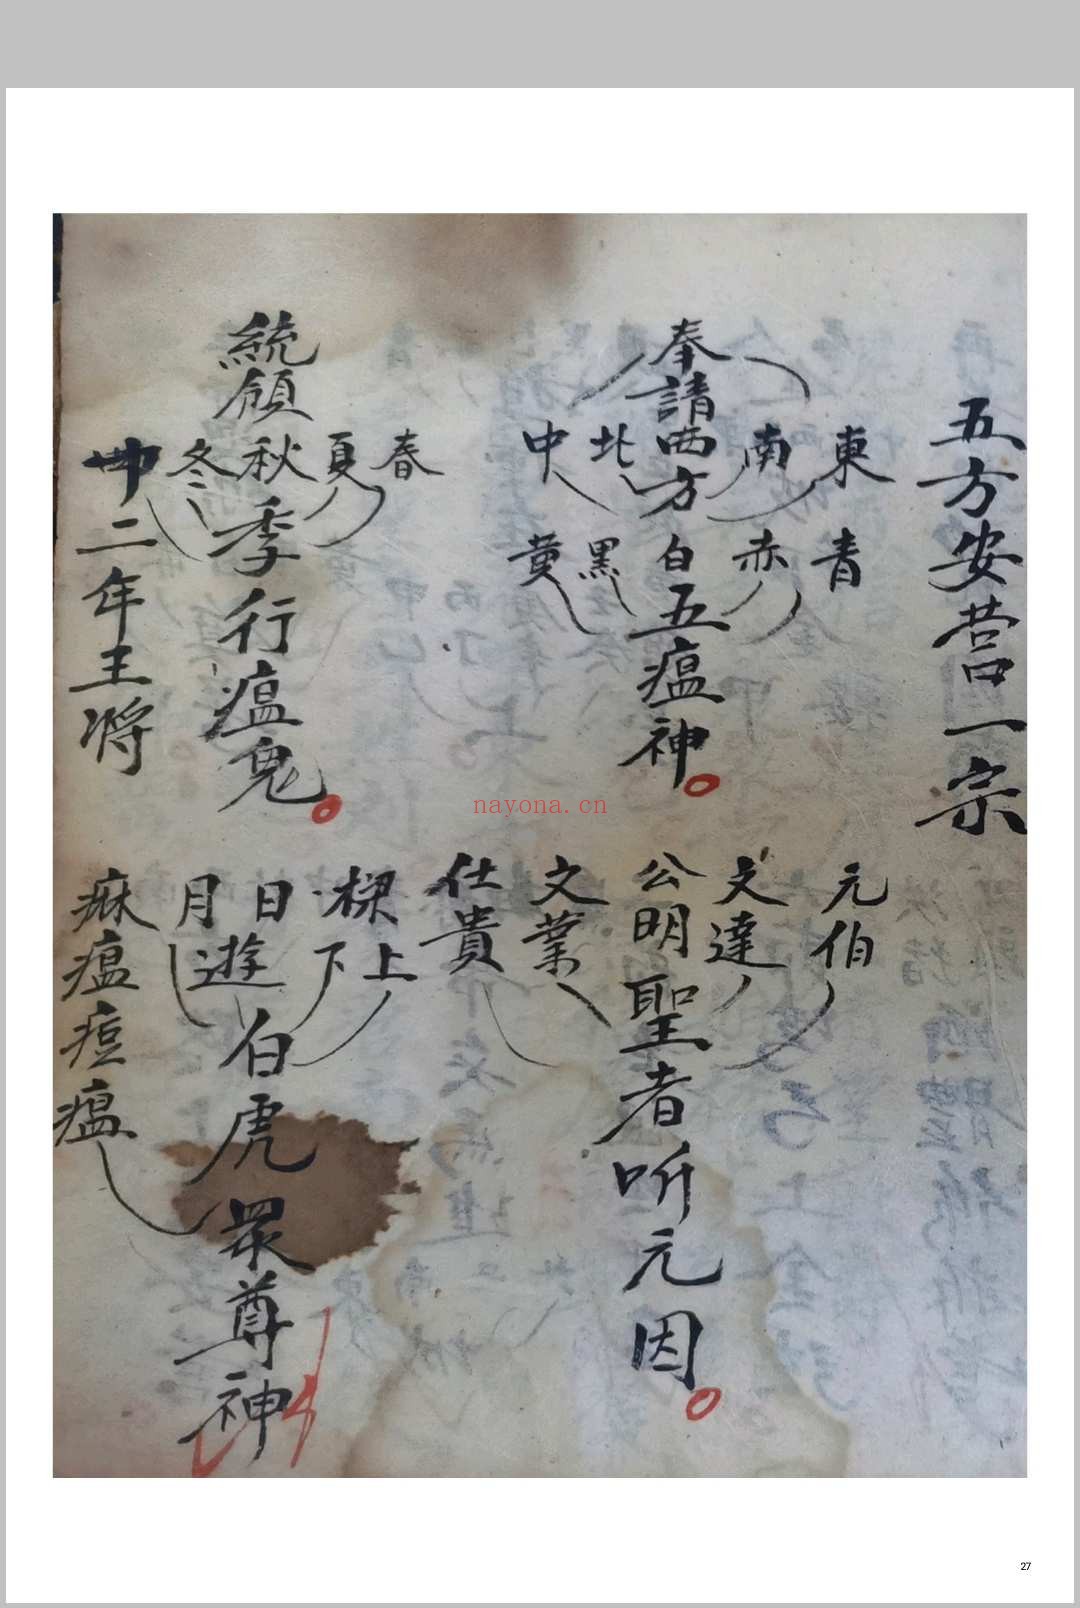 五方安营一宗
東 青
南 赤
奉請西方白五瘟神。
北 黑
中 黄
元伯
文達
公明聖者听元因。
文業
仕貴
春
夏
統領秋季行瘟鬼。
冬
二年王将
樑上
下
日遊白虎眾尊神
月
痳瘟痘瘟
nayona.cn
27